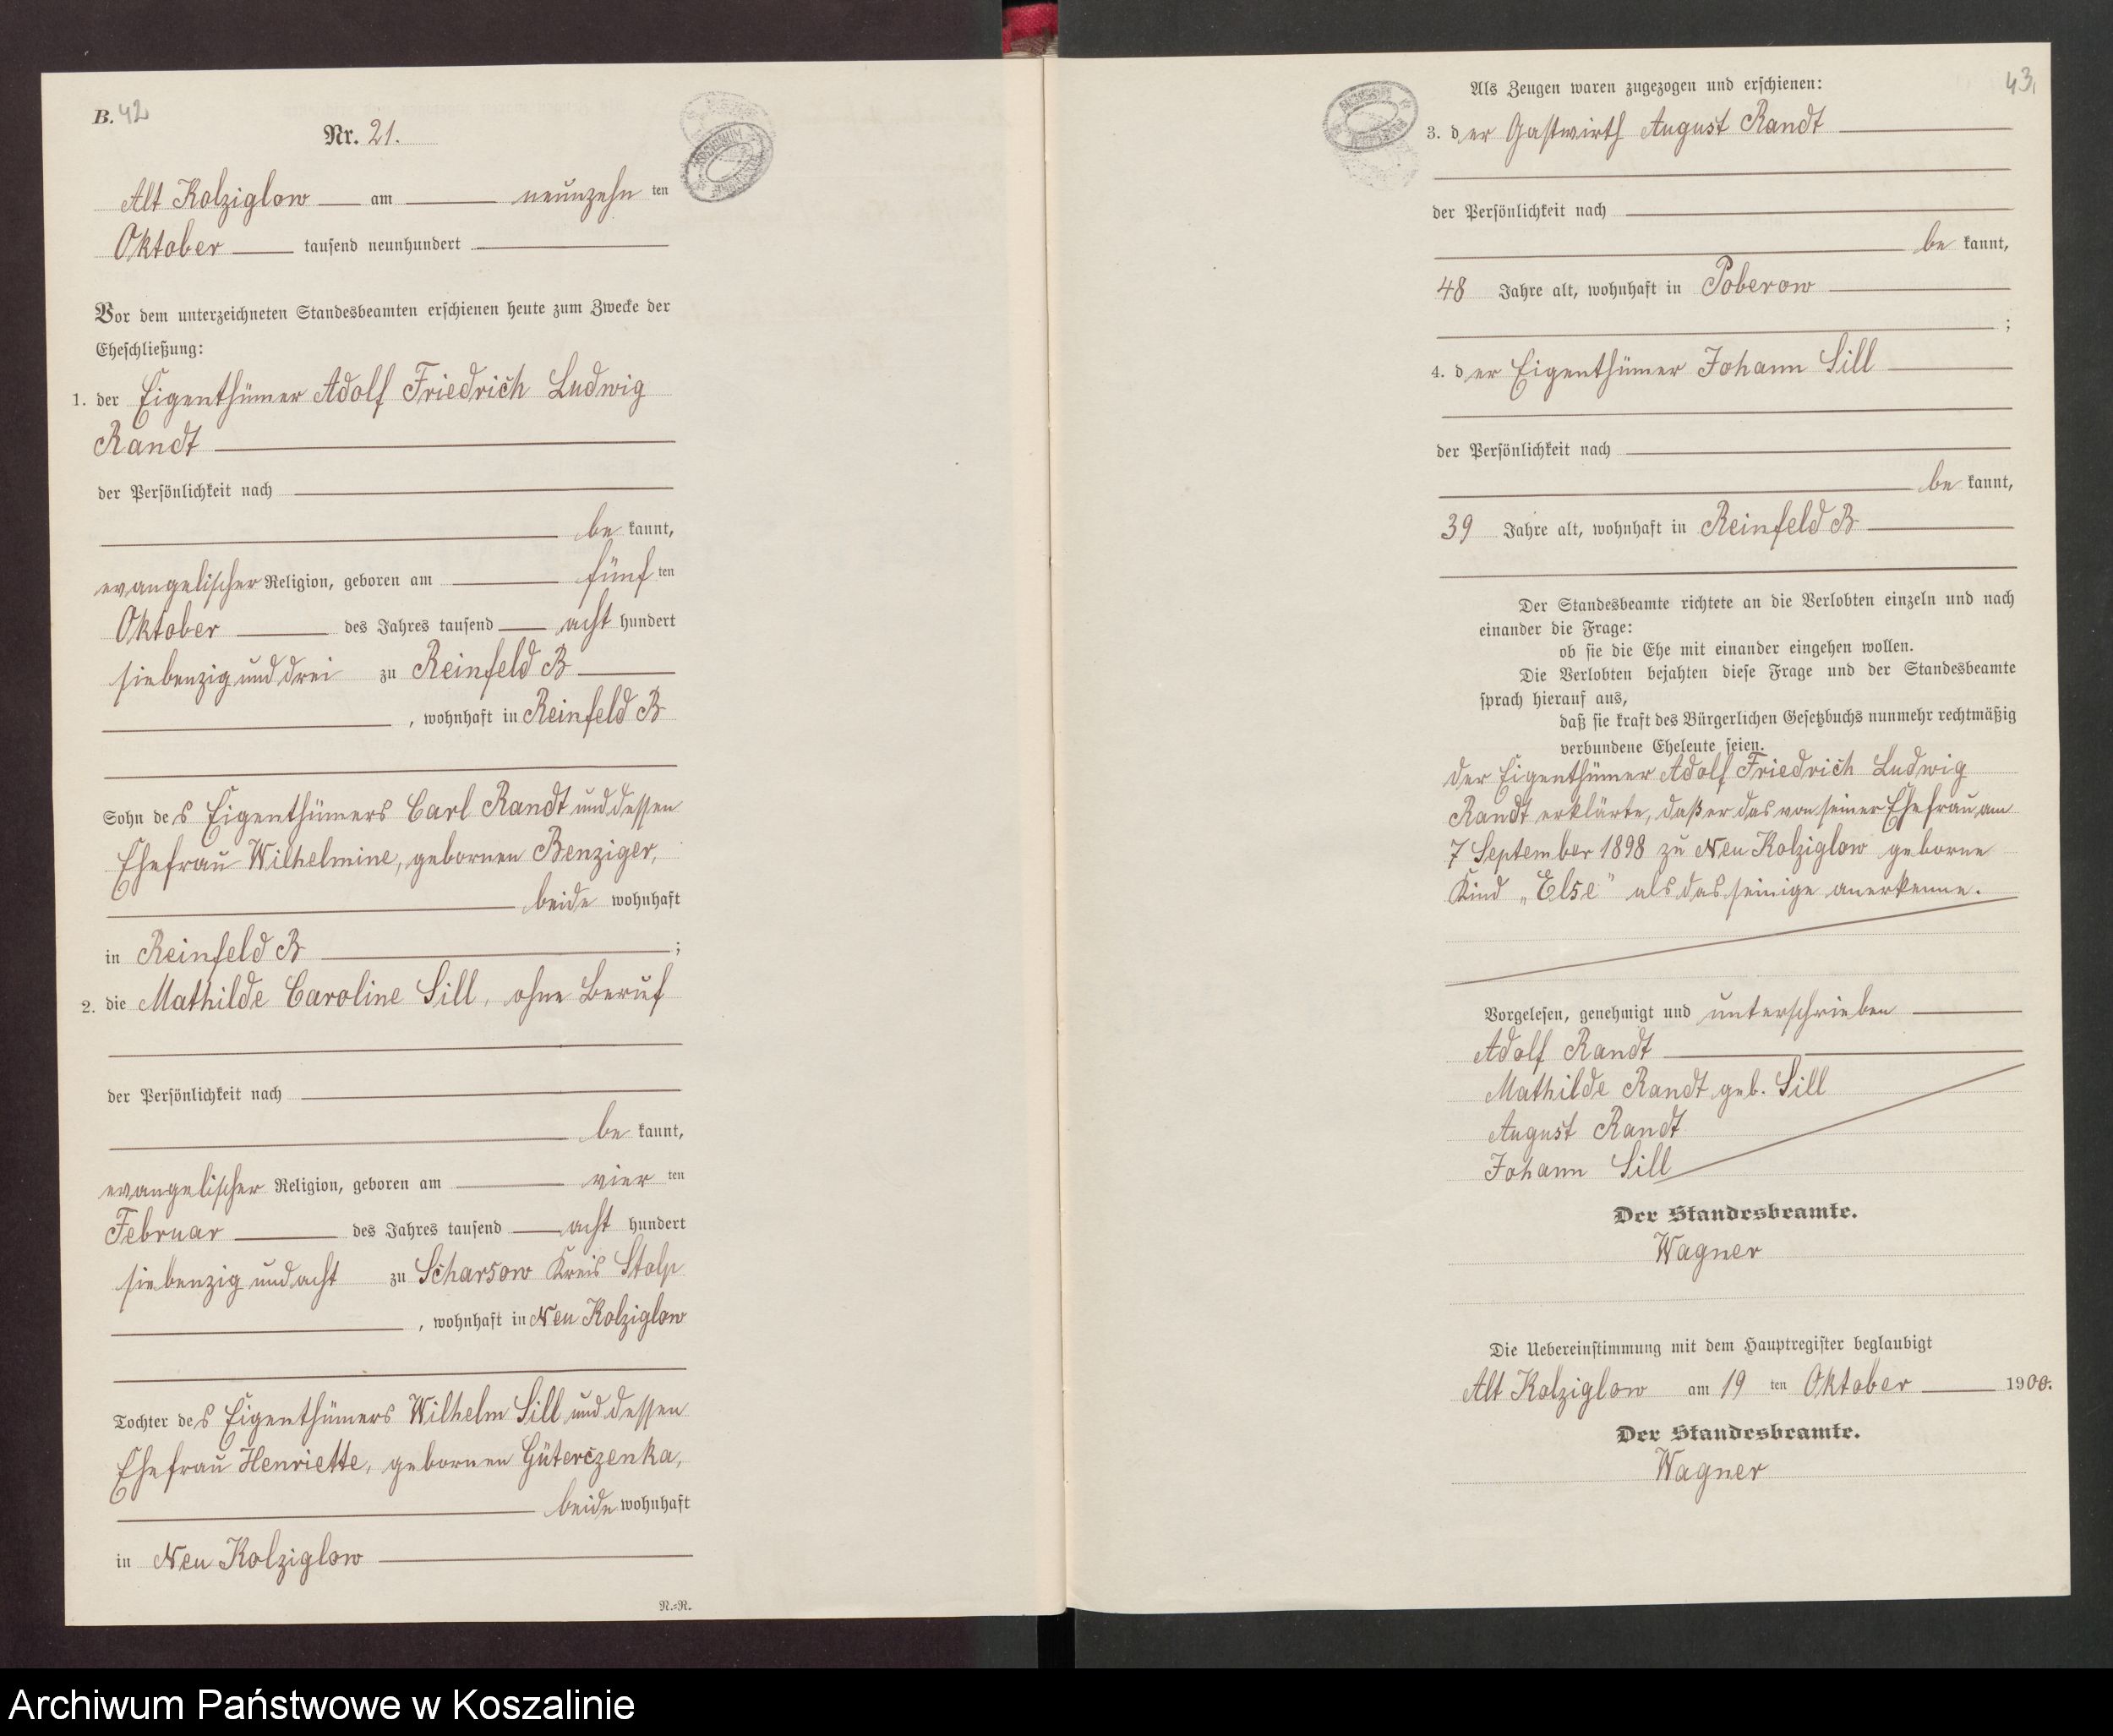 B. 42
Nr. 21.
Alt Kolziglow am neunzehn ten
Oktober tausend neunhundert
Vor dem unterzeichneten Standesbeamten erschienen heute zum Zwecke der
Eheschließung:
1. der Eigenthümer Adolf Friedrich Ludwig
Randt
der Persönlichkeit nach
be kannt,
evangelischer Religion, geboren am fünf ten
Oktober des Jahres tausend acht hundert
siebenzig und drei zu Reinfeld B
, wohnhaft in Reinfeld B
Sohn des Eigenthümers Carl Randt und dessen
Ehefrau Wilhelmine, gebornen Benziger,
beide wohnhaft
in Reinfeld B ;
2. die Mathilde Caroline Sill, ohne Beruf
der Persönlichkeit nach
be kannt,
evangelischer Religion, geboren am vier ten
Februar des Jahres tausend acht hundert
siebenzig und acht zu Scharsow Kreis Stolp
, wohnhaft in Neu Kolziglow
Tochter des Eigenthümers Wilhelm Sill und dessen
Ehefrau Henriette, gebornen Güterczenka,
beide wohnhaft
in Neu Kolziglow
N.=N.
43.
Als Zeugen waren zugezogen und erschienen:
3. der Gastwirth August Randt
der Persönlichkeit nach
be kannt,
48 Jahre alt, wohnhaft in Poberow
;
4. der Eigenthümer Johann Sill
der Persönlichkeit nach
be kannt,
39 Jahre alt, wohnhaft in Reinfeld B
Der Standesbeamte richtete an die Verlobten einzeln und nach
einander die Frage:
ob sie die Ehe mit einander eingehen wollen.
Die Verlobten bejahten diese Frage und der Standesbeamte
sprach hierauf aus,
daß sie kraft des Bürgerlichen Gesetzbuchs nunmehr rechtmäßig
verbundene Eheleute seien.
Der Eigenthümer Adolf Friedrich Ludwig
Randt erklärte, daß er das von seiner Ehefrau am
7 September 1898 zu Neu Kolziglow geborne
Kind „Else" als das seinige anerkenne.
Vorgelesen, genehmigt und unterschrieben
Adolf Randt
Mathilde Randt geb. Sill
August Randt
Johann Sill
Der Standesbeamte.
Wagner
Die Uebereinstimmung mit dem Hauptregister beglaubigt
Alt Kolziglow am 19 ten Oktober 1900.
Der Standesbeamte.
Wagner
Archiwum Państwowe w Koszalinie